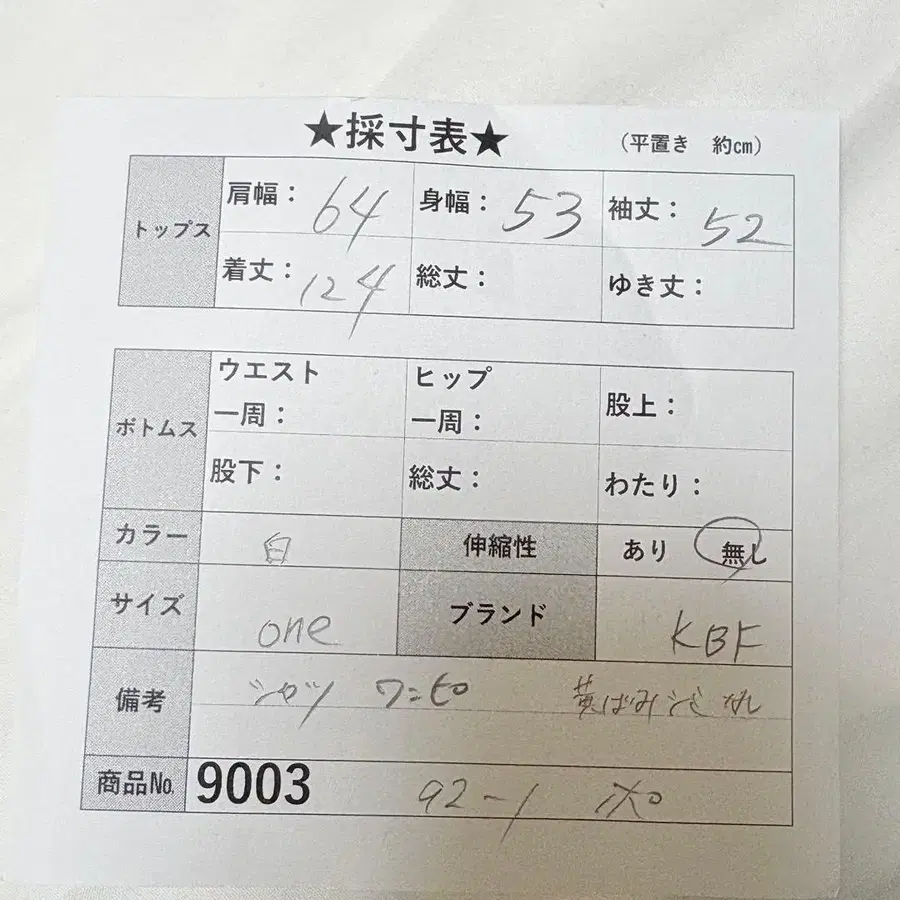 ★採寸表★ (平置き 約cm)
トップス 肩幅: 64 身幅: 53 袖丈: 52
着丈: 124 総丈: ゆき丈:
ボトムス ウエスト一周: ヒップ一周: 股上:
股下: 総丈: わたり:
カラー 白 伸縮性 あり 無し
サイズ one ブランド KBF
備考 シャツ ワンピ 黄ばみシミ
商品No. 9003 92-1